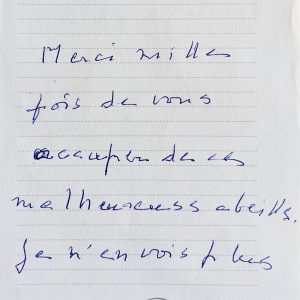 Merci mille
fois de vous
occuper de ces
malheureuses abeilles.
Je n'en vois plus